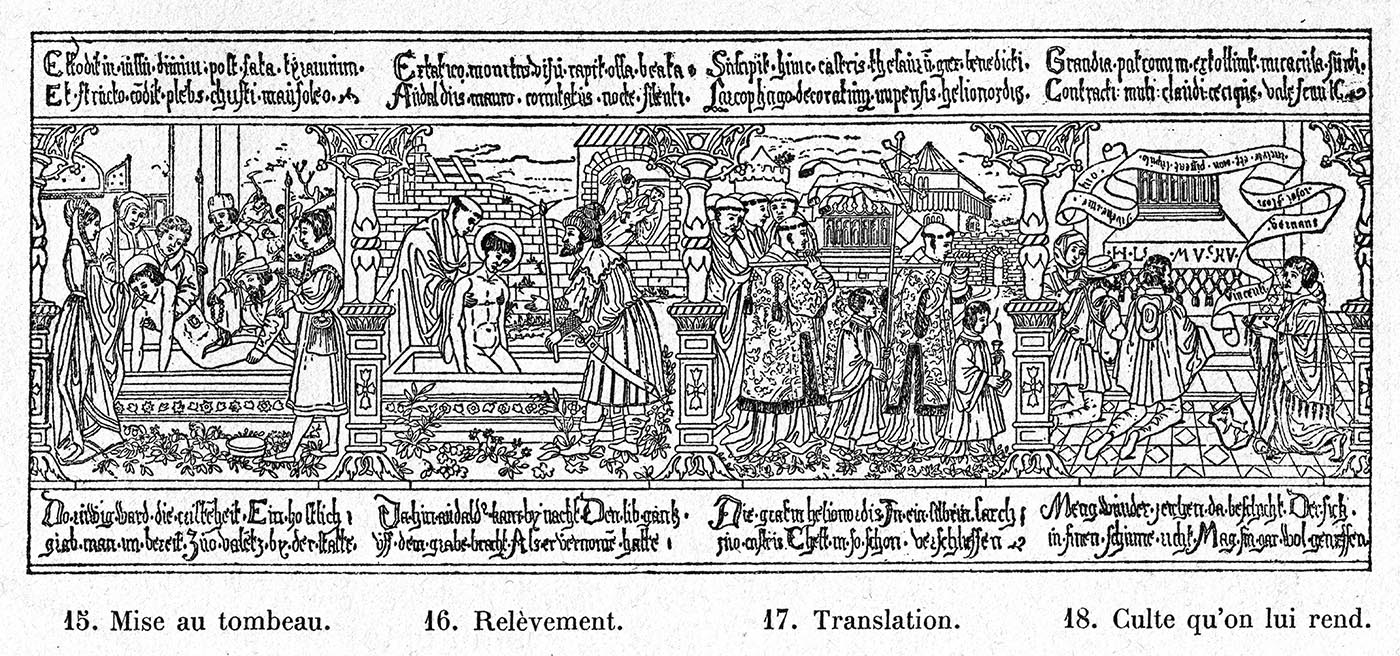 post·fata·
Et·stricto·codit·plebs·christi·mausoleo·
Extatico·monitus·visu·rapit·ossa·beata·
Audaldus·mauro·comitatus·nocte·silenti·
Suscipit·hinc·castris·thesaurū·grex·benedicti·
Sarcophago·decoratum·inpensis·helionordis·
Grandia·patronum·extollunt·miracula·surdi·
Contracti·muti·claudi·cecique·
Vincenti
bernens
Do·ruwig·ward·die·cristēheit·Ein·
grab·man·im·bereit·Zuo·valetz·by·der·statte·
Da·hin·audald·kam·by·nacht·Den·lib·gantz·
uss·dem·grabe·bracht·Als·er·vernomē·hatte·
Die·grafin·helionordis·In·ein·silbrin·sarch
zuo·castris·Thett·in·so·schon·verschliessen
Meng·wunder·zeichen·da·beschicht·Der·sich·
in·sinen·schirme·richt·Mag·sin·gar·wol·geniessen
15. Mise au tombeau. 16. Relèvement. 17. Translation. 18. Culte qu'on lui rend.